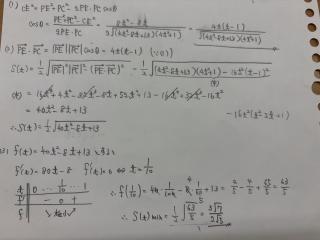 (1) CE² = PE² + PC² - 2PE·PC cosθ
cosθ = (PE² + PC² - CE²)/(2PE·PC) = (8t² - 8t)/(2√(4t²-8t+13)(4t²+1)) = 4t(t-1)/√(4t²-8t+13)(4t²+1)
(2) PE·PC = |PE||PC|cosθ = 4t(t-1) (∵(1))
S(t) = 1/2 √|PE|²|PC|² - (PE·PC)² = 1/2 √(4t²-8t+13)(4t²+1) - 16t²(t-1)²
(*)
(*) = 16t⁴ + 4t² - 32t³ - 8t + 52t² + 13 - 16t⁴ + 32t³ - 16t²
- 16t²(t²-2t+1)
= 40t² - 8t + 13
∴ S(t) = 1/2 √40t² - 8t + 13
(3) f(t) = 40t² - 8t + 13
f'(t) = 80t - 8 f'(t) = 0 ⇔ t = 1/10
t 0 … 1/10 … 1
f' - 0 +
f ↘ 極小 ↗
∴ f(1/10) = 40·1/100 - 8·1/10 + 13 = 2/5 - 4/5 + 65/5 = 63/5
∴ S(t)min = 1/2 √63/5 = 3√7/2√5